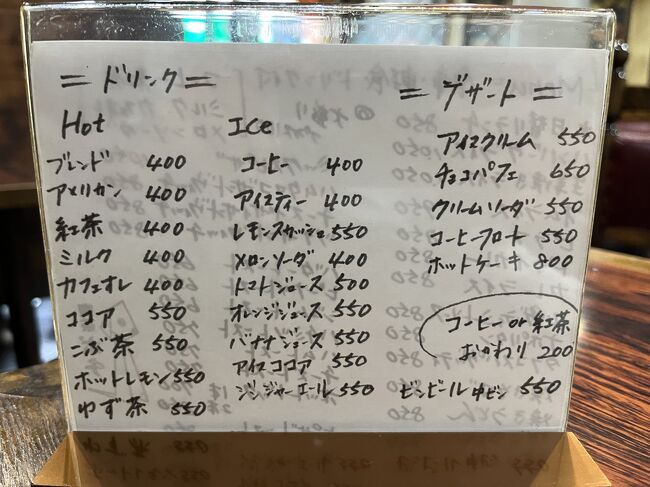 ＝ドリンク＝
Hot
ブレンド 400
アメリカン 400
紅茶 400
ミルク 400
カフェオレ 400
ココア 550
こぶ茶 550
ホットレモン 550
ゆず茶 550
Ice
コーヒー 400
アイスティー 400
レモンスカッシュ 550
メロンソーダ 400
トマトジュース 500
オレンジジュース 550
バナナジュース 550
アイスココア 550
ジンジャーエール 550
＝デザート＝
アイスクリーム 550
チョコパフェ 650
クリームソーダ 550
コーヒーフロート 550
ホットケーキ 800
コーヒー or 紅茶
おかわり 200
ビンビール中ビン 550